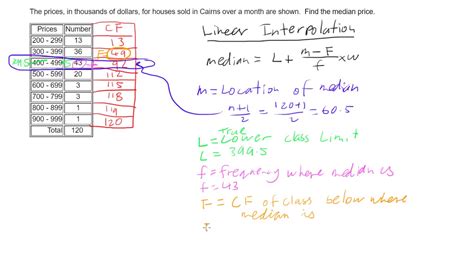 The prices, in thousands of dollars, for houses sold in Cairns over a month are shown. Find the median price.
Prices Number CF
200 - 299 13 13
300 - 399 36 F= 49
400 - 499 43 92
500 - 599 20 112
600 - 699 3 115
700 - 799 3 118
800 - 899 1 119
900 - 999 1 120
Total 120
Linear Interpolation
median = L + m-F/f xw
m = Location of median
n+1/2 = 120+1/2 = 60.5
True
L = Lower class Limit
L = 399.5
f = frequency where median is
f = 43
F = CF of class below where
median is
F